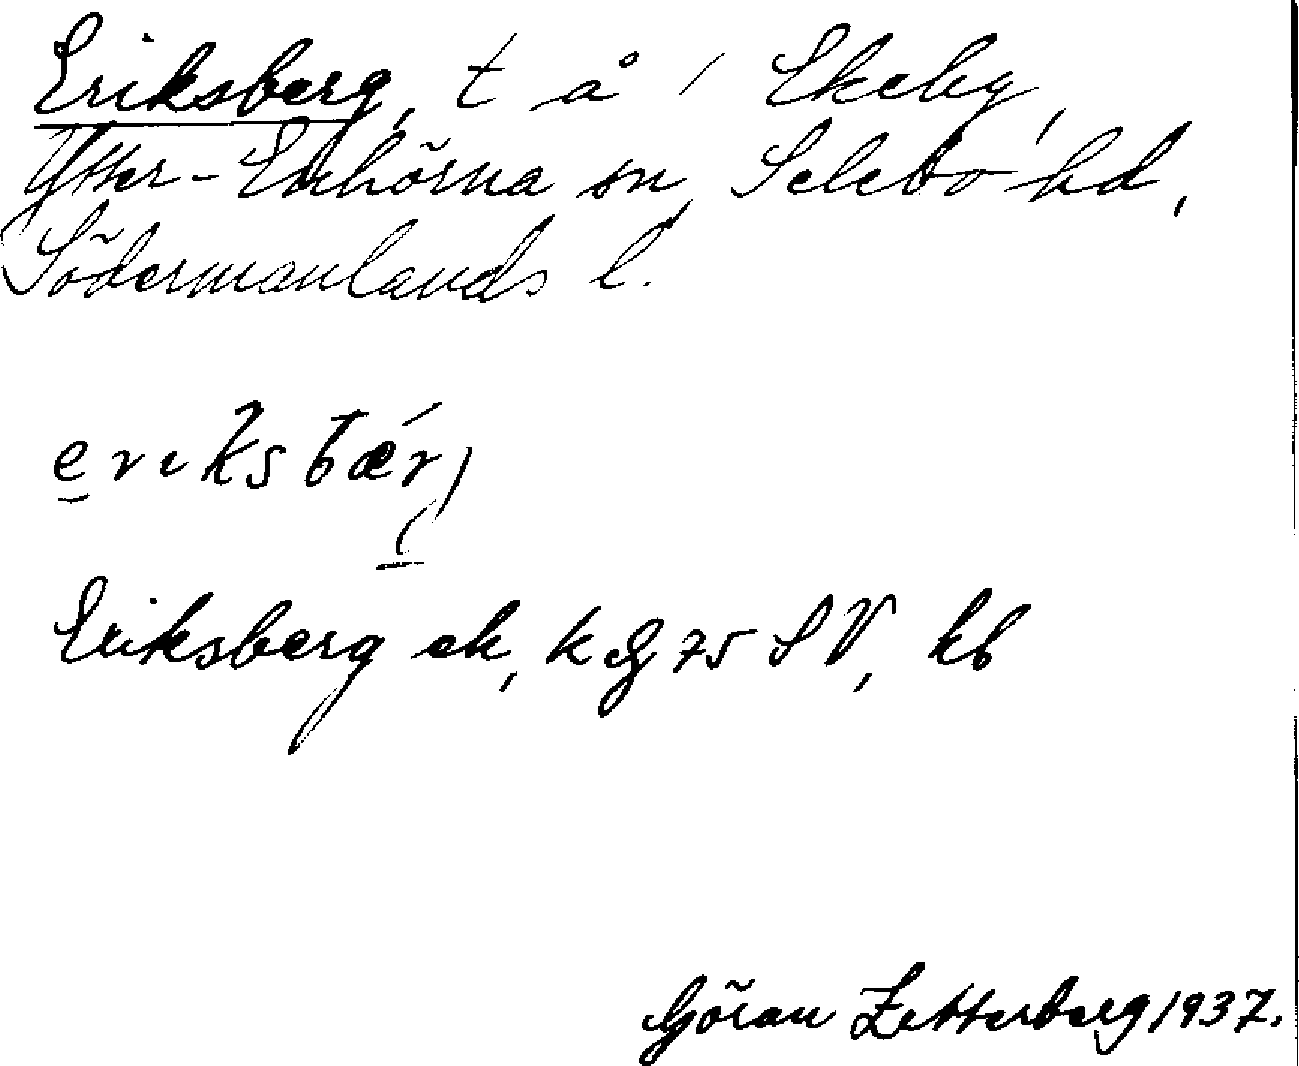 Eriksberg, t å / Ekeby,
Ytter-Enhörna sn, Selebo hd,
Södermanlands l.
Eriksberg ek, k & 75 SV, kb
Göran Zetterberg 1937.